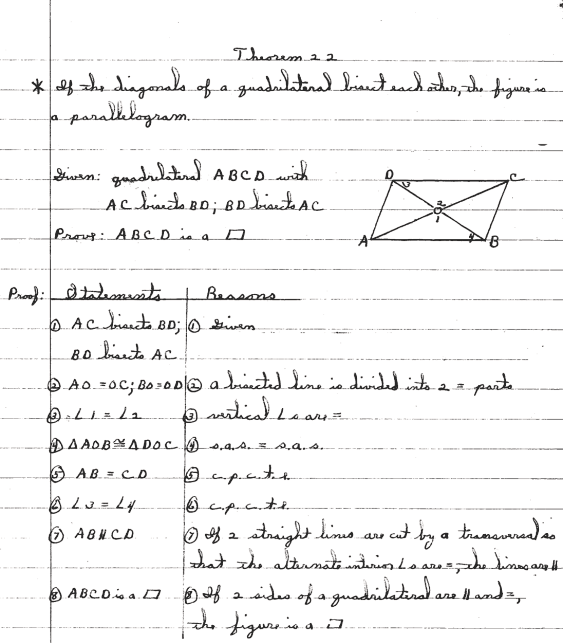 Theorem 22
* If the diagonals of a quadrilateral bisect each other, the figure is
a parallelogram.
Given: quadrilateral ABCD with
AC bisects BD; BD bisects AC
Prove: ABCD is a ▱
D C
3 2
O
1
A 4 B
Proof: Statements Reasons
① AC bisects BD; ① Given
BD bisects AC
② AO = OC; BO = OD ② a bisected line is divided into 2 = parts
③ ∠1 = ∠2 ③ vertical ∠s are =
④ △AOB ≅ △DOC ④ s.a.s. = s.a.s.
⑤ AB = CD ⑤ c.p.c.t.e.
⑥ ∠3 = ∠4 ⑥ c.p.c.t.e.
⑦ AB ∥ CD ⑦ If 2 straight lines are cut by a transversal so
that the alternate interior ∠s are =, the lines are ∥
⑧ ABCD is a ▱ ⑧ If 2 sides of a quadrilateral are ∥ and =,
the figure is a ▱